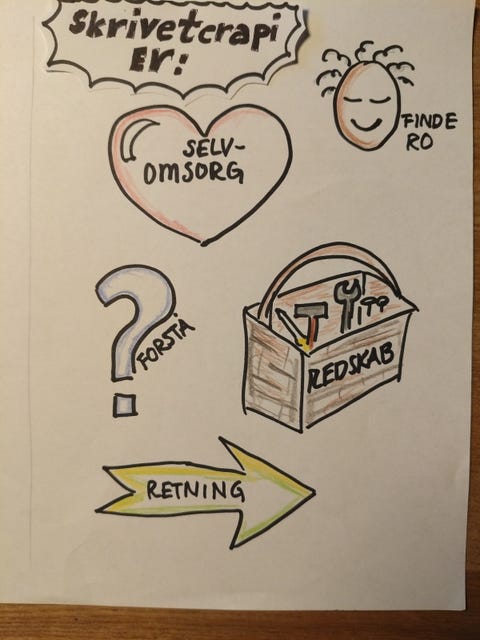 Skriveterapi
Er:
FINDE
RO
SELV-
OMSORG
FORSTÅ
REDSKAB
RETNING